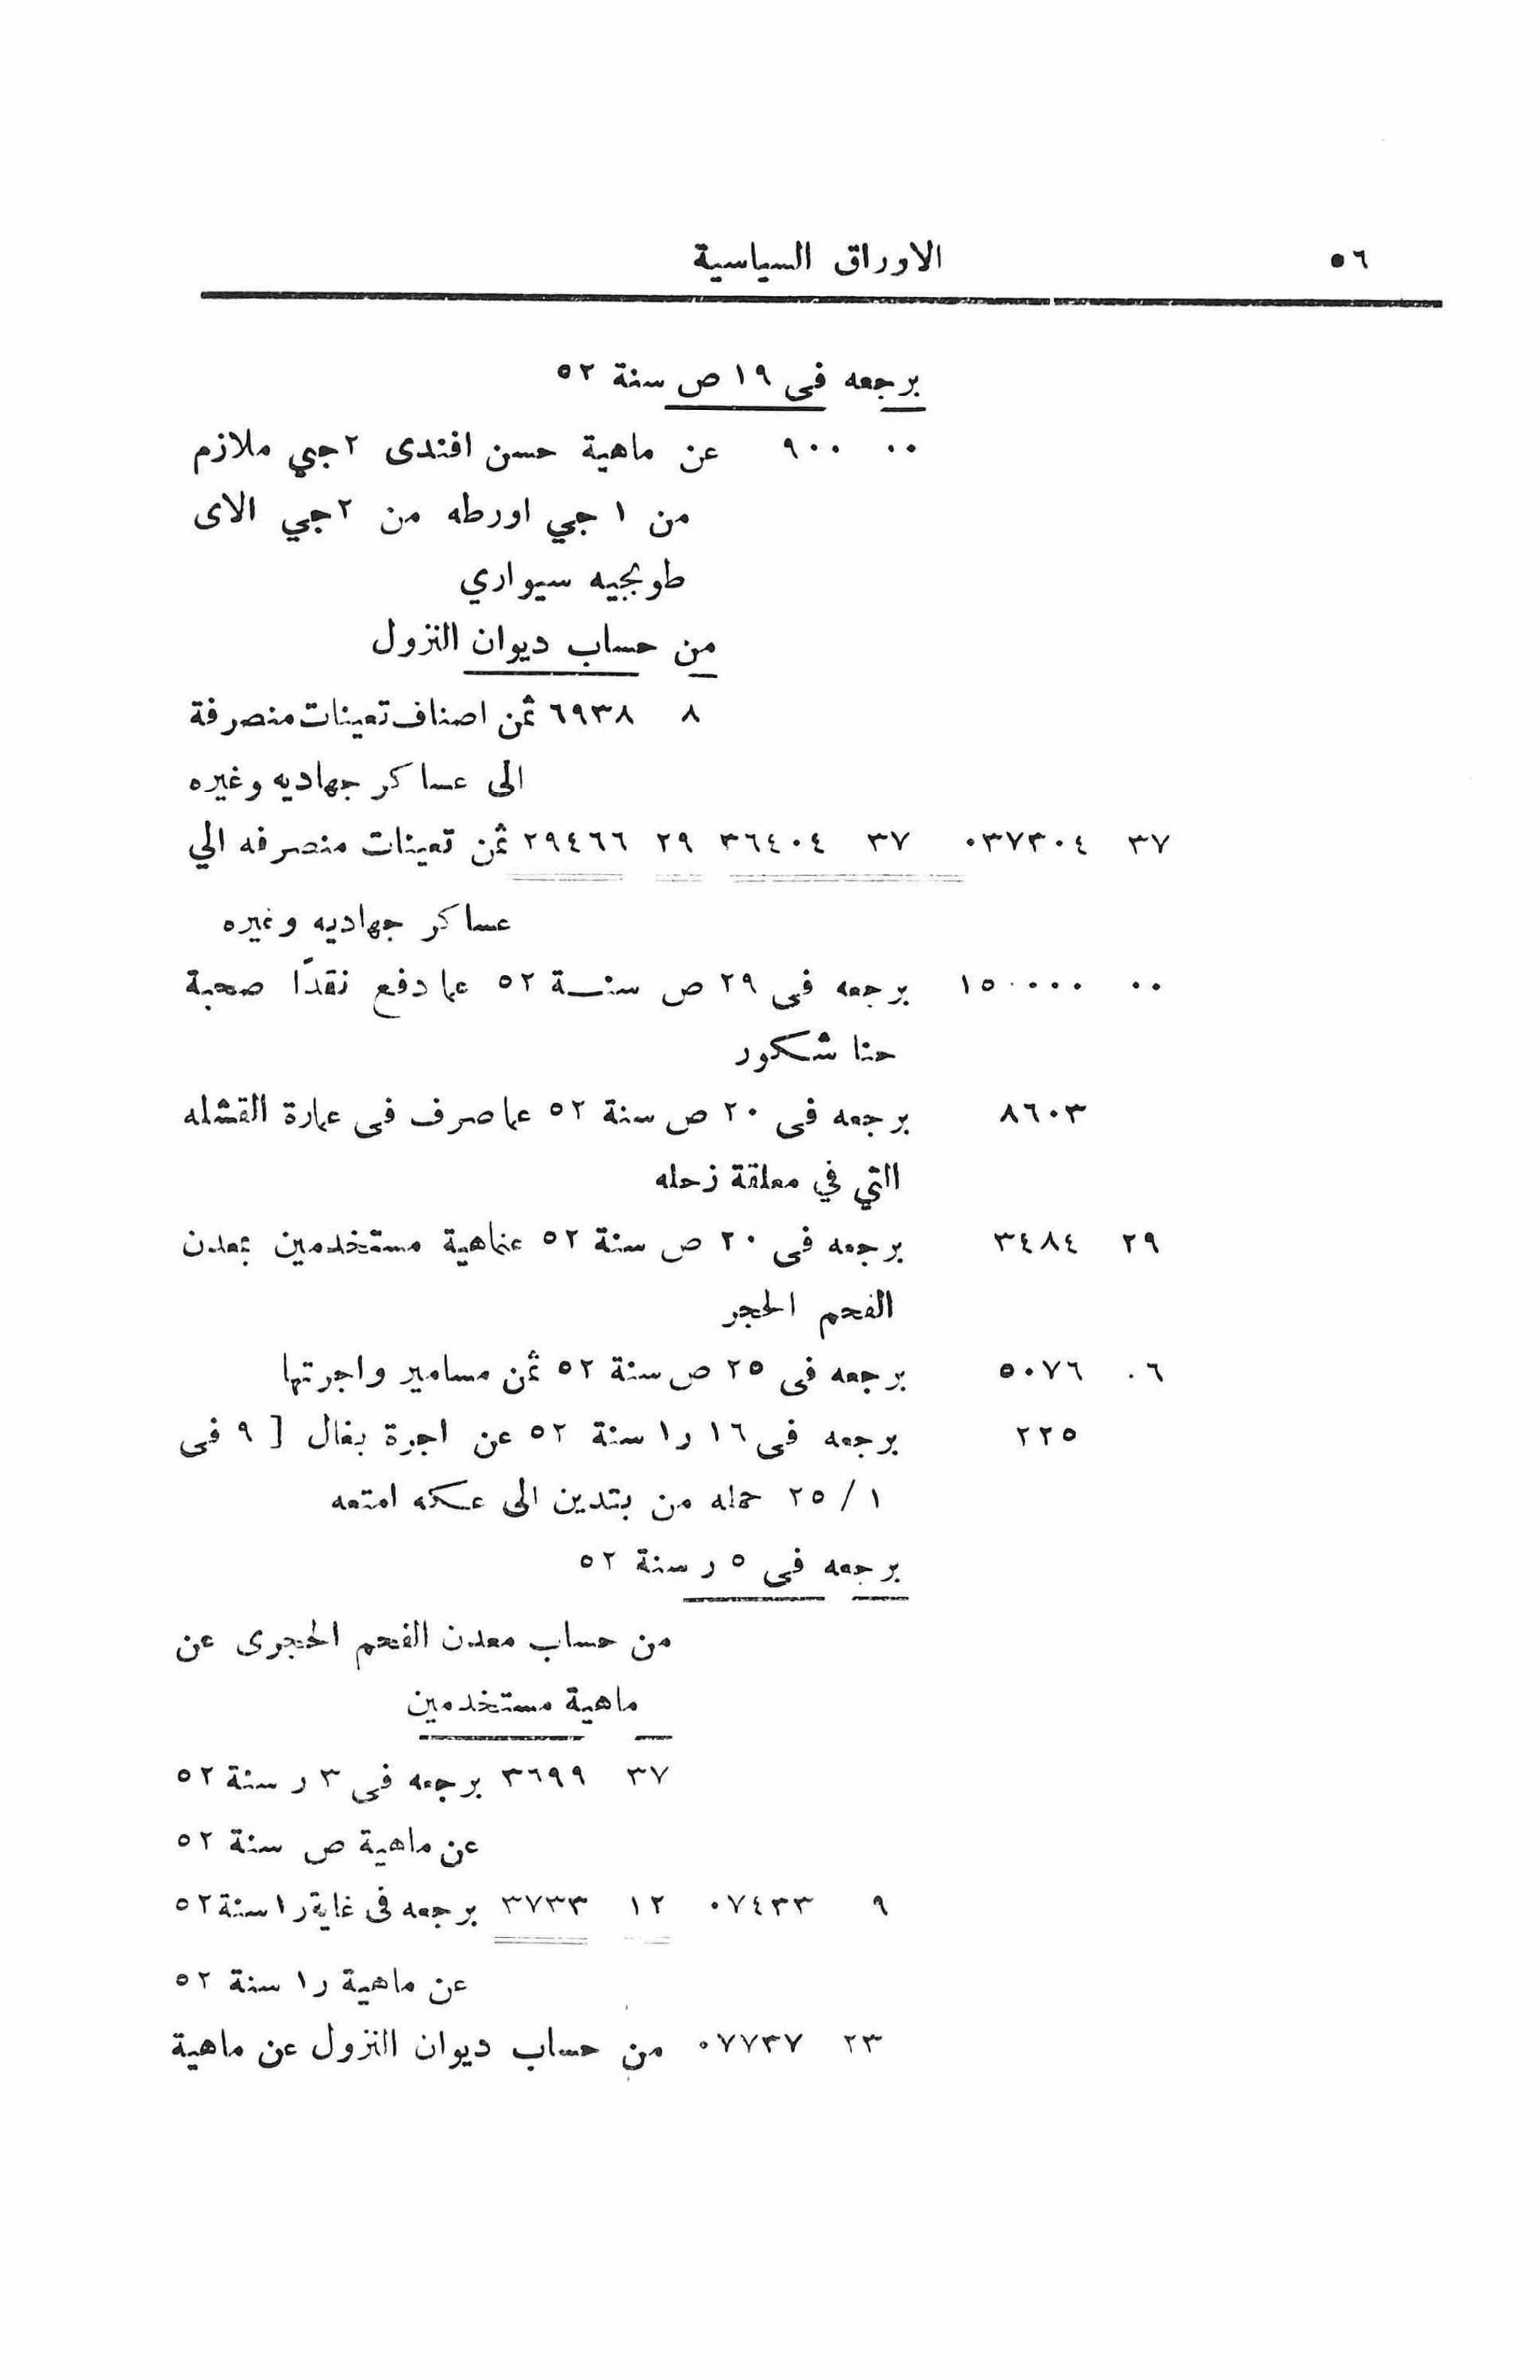 ٥٦ الاوراق السياسية
برجعه فى ١٩ ص سنة ٥٢
٠٠ ٩٠٠ عن ماهية حسن افندى ٢جي ملازم
من ١ جي اورطه من ٢جي الاى
طوبجيه سيواري
من حساب ديوان النزول
٨ ٦٩٣٨ ثمن اصناف تعينات منصرفة
الى عساكر جهاديه وغيره
٣٧ ٠٣٧٣٠٤ ٣٧ ٣٦٤٠٤ ٢٩ ٢٩٤٦٦ ثمن تعينات منصرفه الي
عساكر جهاديه وغيره
٠٠ ١٥٠٠٠٠ برجعه فى ٢٩ ص سنة ٥٢ عما دفع نقدًا صحبة
حنا شكور
٨٦٠٣ برجعه فى ٢٠ ص سنة ٥٢ عما صرف فى عمارة القشله
التي في معلقة زحله
٢٩ ٣٤٨٤ برجعه فى ٢٠ ص سنة ٥٢ عنماهية مستخدمين بمعدن
الفحم الحجر
٠٦ ٥٠٧٦ برجعه فى ٢٥ ص سنة ٥٢ ثمن مسامير واجرتها
٢٢٥ برجعه فى ١٦ ر١ سنة ٥٢ عن اجرة بغال [ ٩ فى
١ / ٢٥ حمله من بتدين الى عكه امتعه
برجعه فى ٥ ر سنة ٥٢
من حساب معدن الفحم الحجرى عن
ماهية مستخدمين
٣٧ ٣٦٩٩ برجعه فى ٣ ر سنة ٥٢
عن ماهية ص سنة ٥٢
٩ ٠٧٤٣٣ ١٢ ٣٧٣٣ برجعه فى غاية ر١ سنة ٥٢
عن ماهية ر١ سنة ٥٢
٢٣ ٠٧٧٣٧ من حساب ديوان النزول عن ماهية